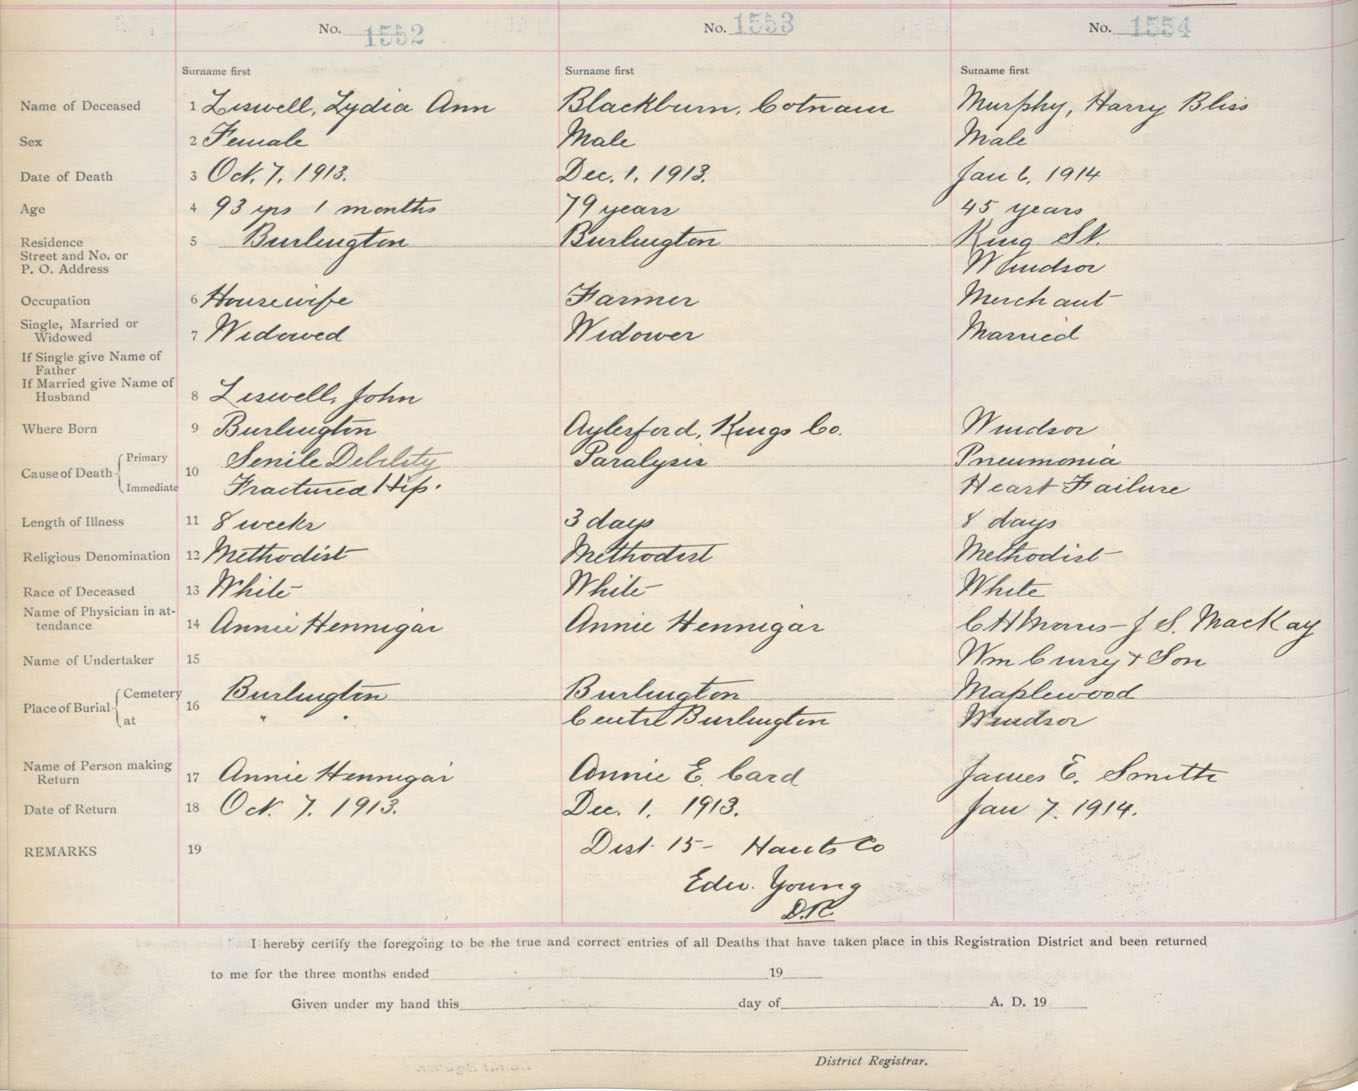 No. 1552 No. 1553 No. 1554
Surname first Surname first Surname first
Name of Deceased 1 Liswell, Lydia Ann Blackburn, Cotnam Murphy, Harry Bliss
Sex 2 Female Male Male
Date of Death 3 Oct. 7, 1913. Dec. 1, 1913. Jan 6, 1914
Age 4 93 yrs 1 months 79 years 45 years
Residence 5 Burlington Burlington King St.
Street and No. or
P. O. Address Windsor
Occupation 6 Housewife Farmer Merchant
Single, Married or
Widowed 7 Widowed Widower Married
If Single give Name of
Father
If Married give Name of
Husband 8 Liswell, John
Where Born 9 Burlington Aylesford, Kings Co. Windsor
Cause of Death Primary 10 Senile Debility Paralysis Pneumonia
Immediate Fractured Hip. Heart Failure
Length of Illness 11 8 weeks 3 days 8 days
Religious Denomination 12 Methodist Methodist Methodist
Race of Deceased 13 White White White
Name of Physician in at-
tendance 14 Annie Hennigar Annie Hennigar C H Morris - J S. MacKay
Name of Undertaker 15 Wm Curry & Son
Place of Burial Cemetery 16 Burlington Burlington Maplewood
at " " Centre Burlington Windsor
Name of Person making
Return 17 Annie Hennigar Annie E. Card James E. Smith
Date of Return 18 Oct. 7. 1913. Dec. 1. 1913. Jan 7. 1914.
REMARKS 19 Dist 15- Hants Co
Edw. Young
D.R.
I hereby certify the foregoing to be the true and correct entries of all Deaths that have taken place in this Registration District and been returned
to me for the three months ended 19
Given under my hand this day of A. D. 19
District Registrar.